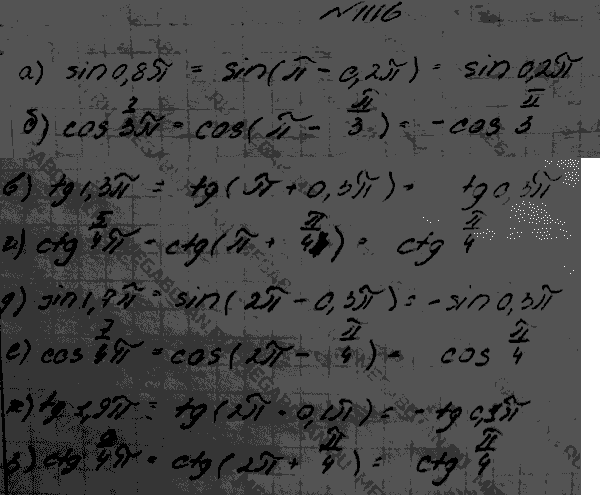 N 1116
а) sin 0,8π = sin(π - 0,2π) = sin 0,2π
б) cos 2/3 π = cos(π - π/3) = - cos π/3
в) tg 1,3π = tg(π + 0,3π) = tg 0,3π
г) ctg 5/4 π = ctg(π + π/4) = ctg π/4
д) sin 1,7π = sin(2π - 0,3π) = - sin 0,3π
е) cos 7/4 π = cos(2π - π/4) = cos π/4
ж) tg 1,9π = tg(2π - 0,1π) = - tg 0,1π
з) ctg 9/4 π = ctg(2π + π/4) = ctg π/4